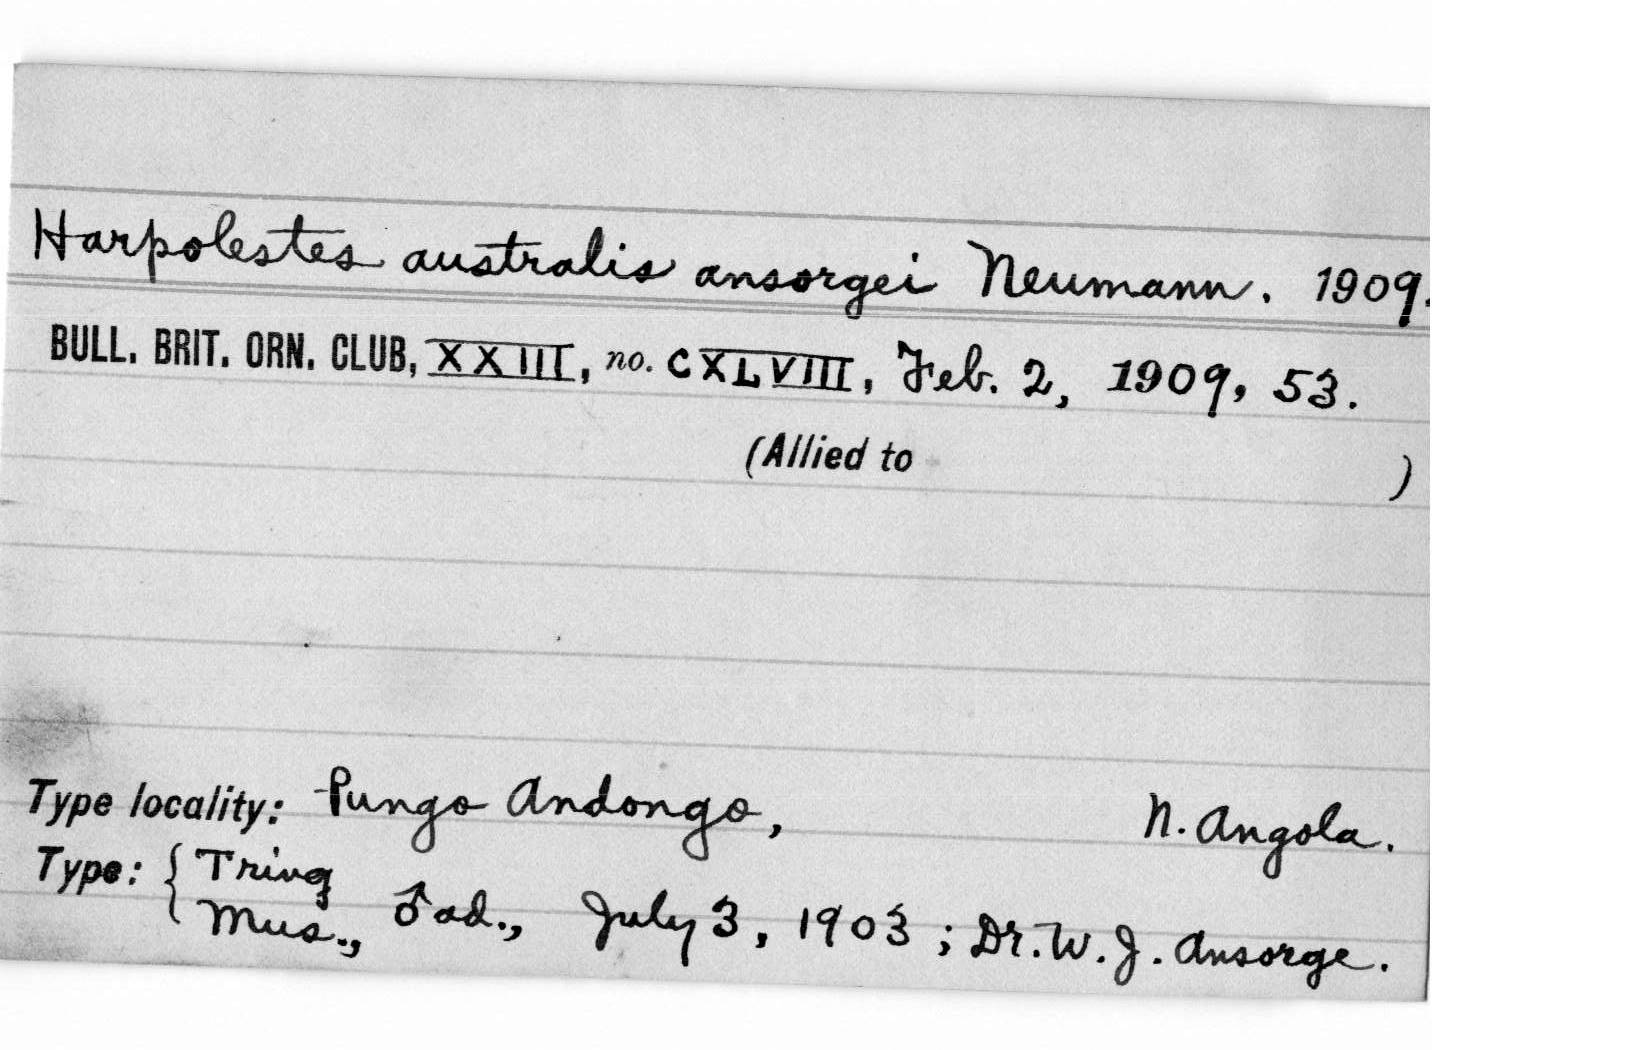 Harpolestes australis ansorgei Neumann. 1909.
BULL. BRIT. ORN. CLUB, XXIII, no. CXLVIII, Feb. 2, 1909, 53.
(Allied to )
Type locality: Pungo Andongo, N. Angola.
Type: { Tring
Mus., ♂ ad., July 3, 1903; Dr. W. J. Ansorge.